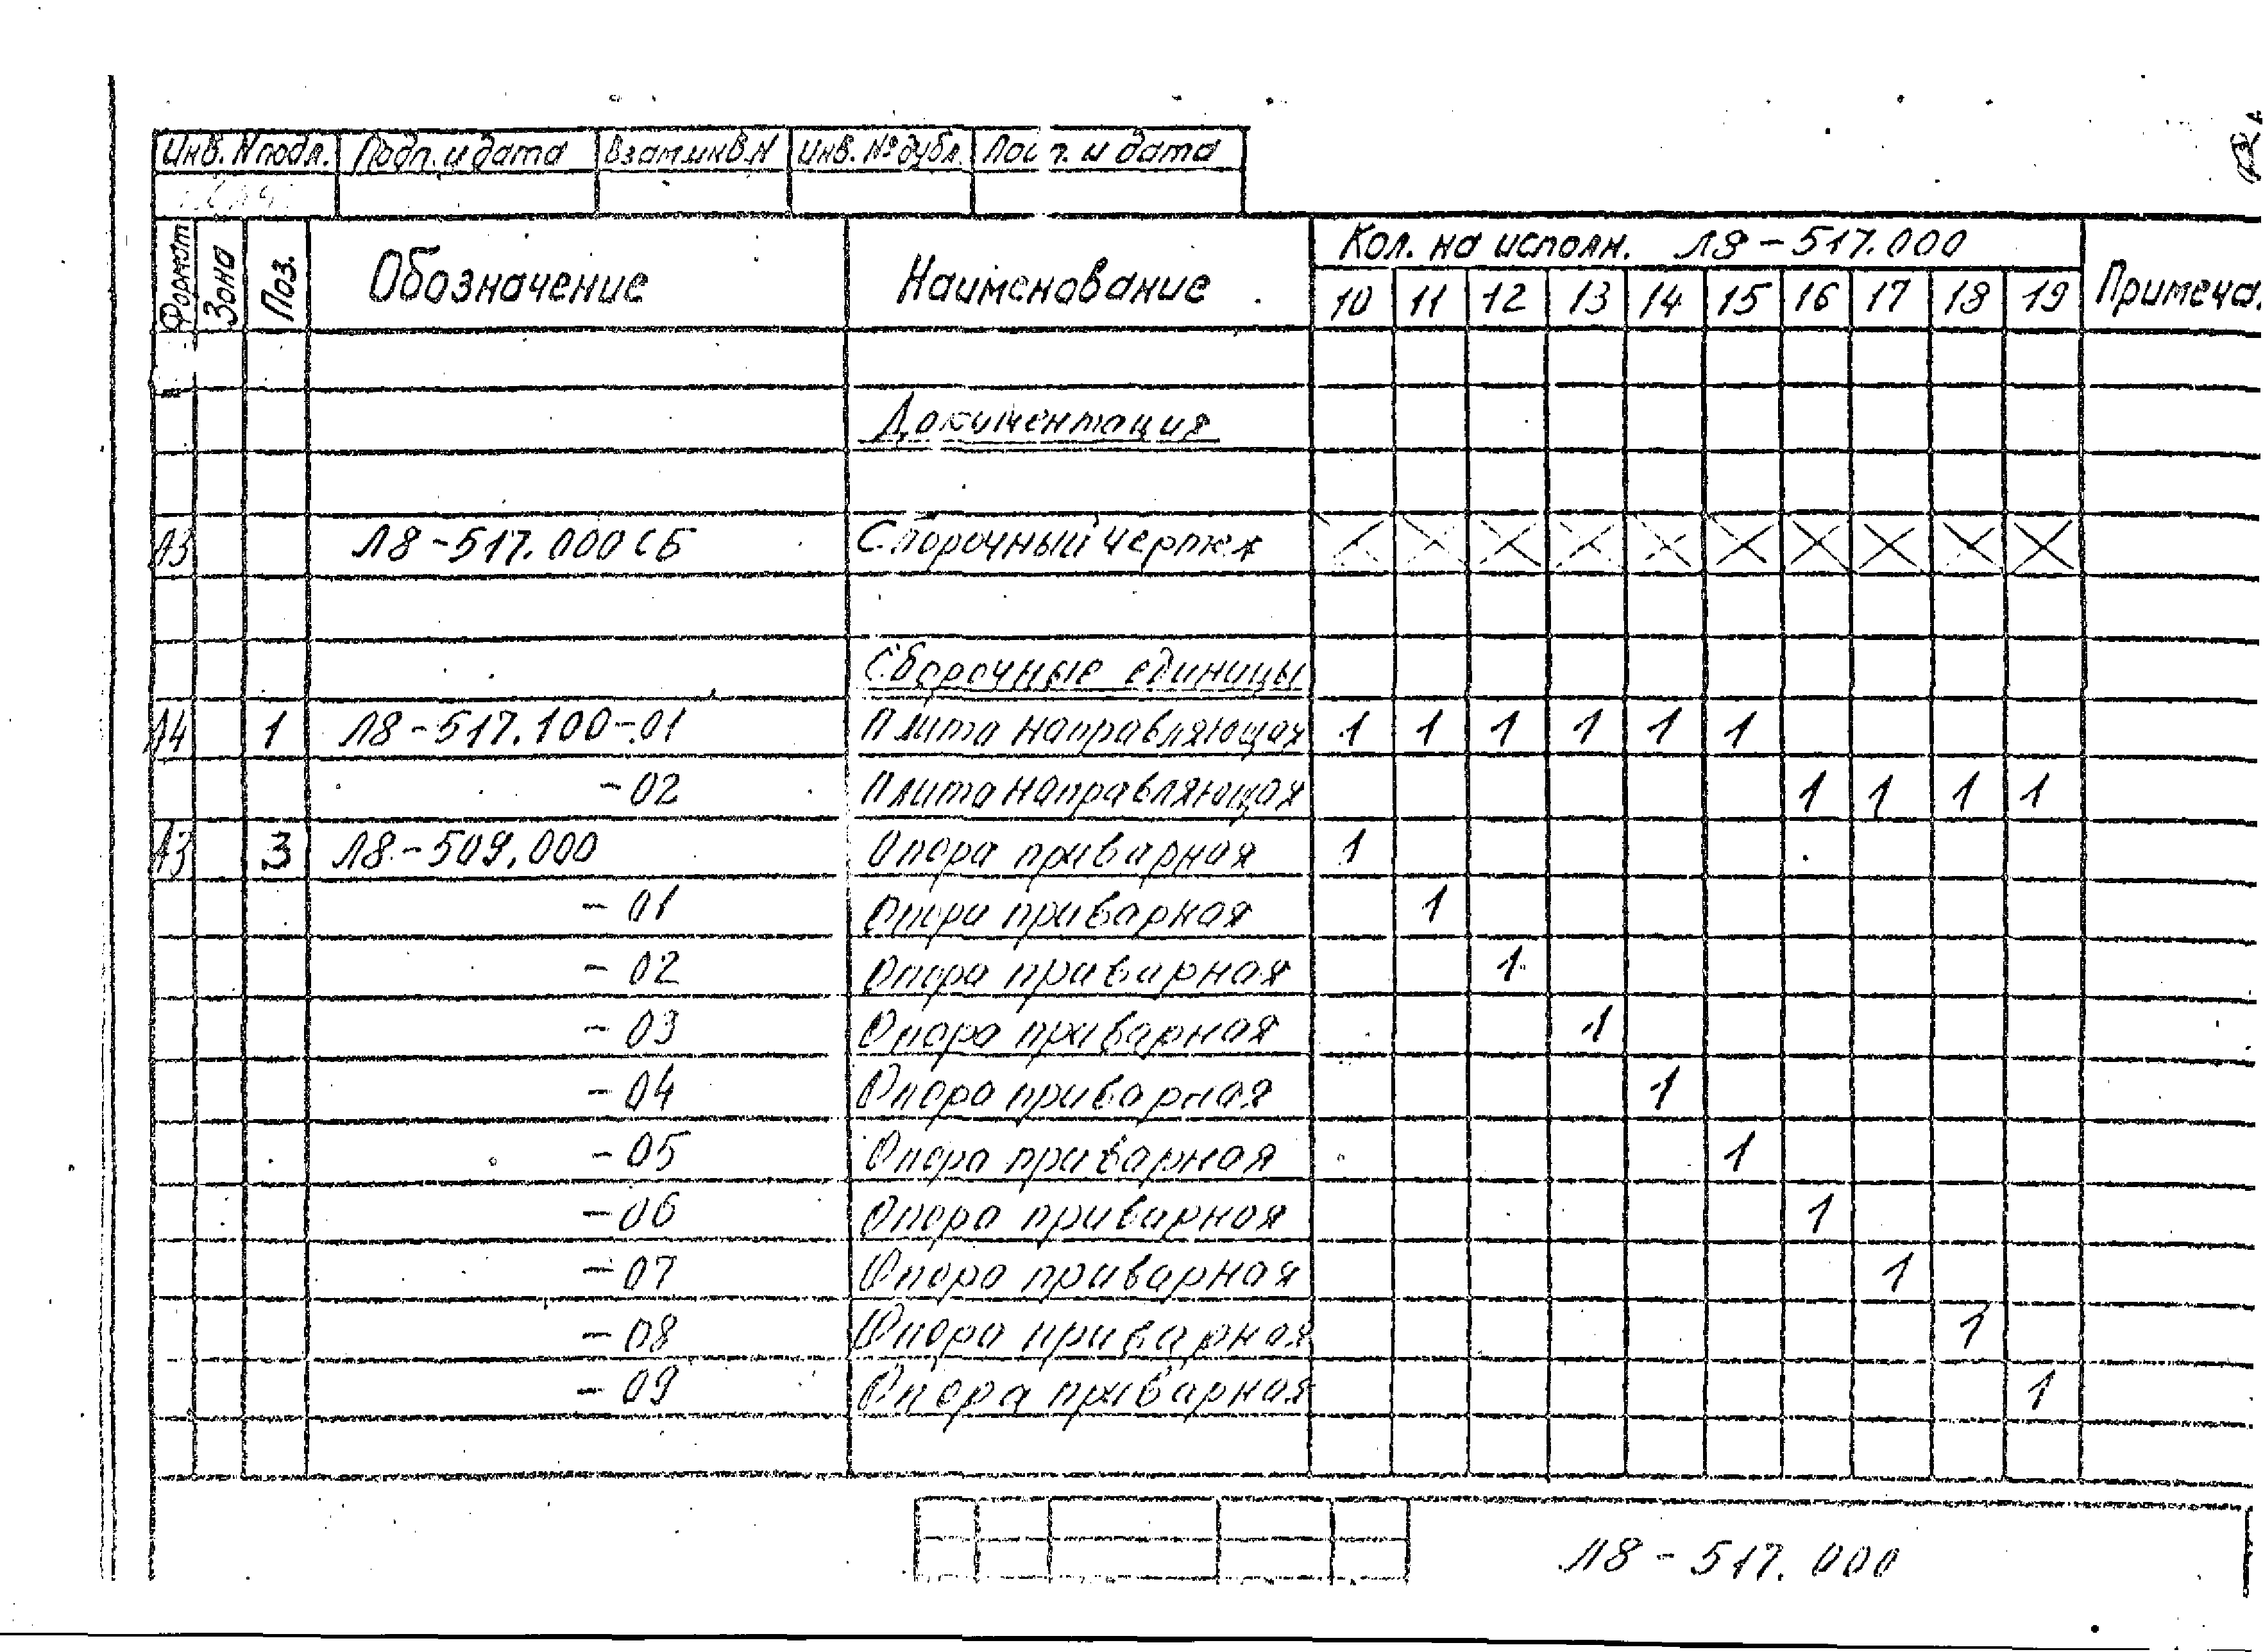 Инв. N подл. Подп. и дата Взам.инв.N Инв. № дубл. Пос т. и дата
Формат Зона Поз. Обозначение Наименование Кол. на исполн. Л8-517.000 Примеча.
10 11 12 13 14 15 16 17 18 19
Документация
А3 Л8-517.000 СБ Сборочный чертеж
Сборочные единицы
А4 1 Л8-517.100-01 Плита направляющая 1 1 1 1 1 1
-02 Плита направляющая 1 1 1 1
А3 3 Л8-509.000 Опора приварная 1
-01 Опора приварная 1
-02 Опора приварная 1
-03 Опора приварная 1
-04 Опора приварная 1
-05 Опора приварная 1
-06 Опора приварная 1
-07 Опора приварная 1
-08 Опора приварная 1
-09 Опора приварная 1
Л8-517.000